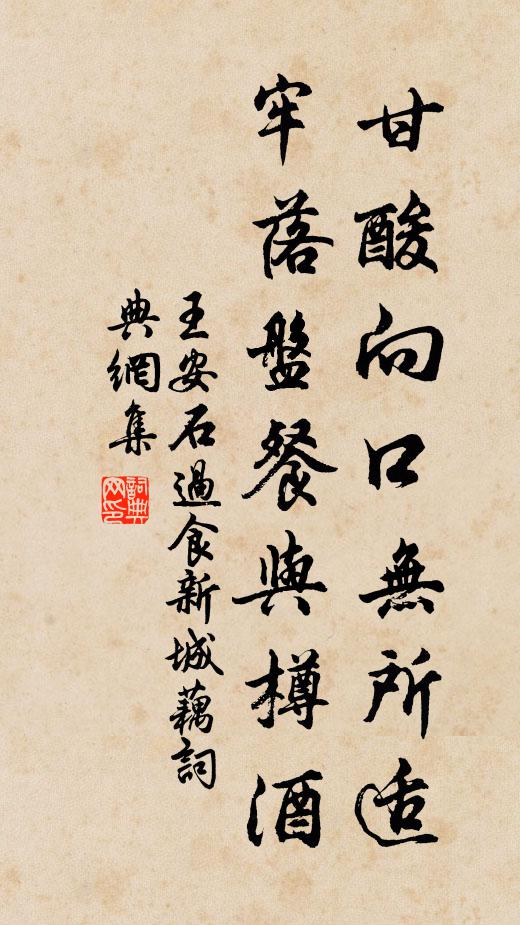 甘酸向口無所适
牢落盤餐與樽酒
王安石過食新城藕詞
典網集
詞典网印